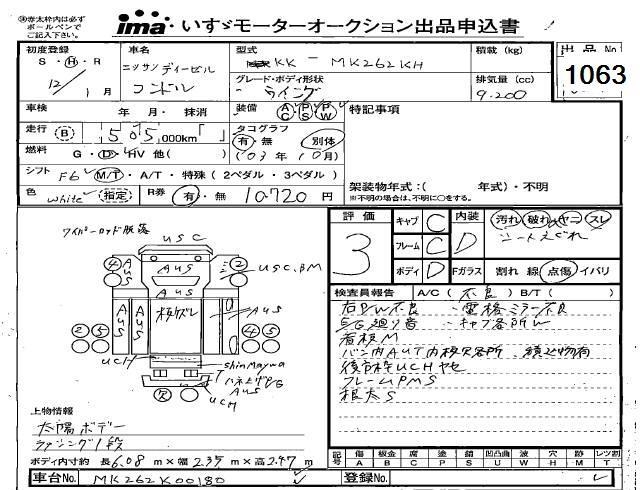 ※赤太枠内は必ず
ボールペンで
ご記入下さい。
ima いすゞモーターオークション出品申込書
初度登録 車名 型式 積載 (kg) 出品No
S・H・R ニッサンディーゼル KK - MK262KH 1063
12/ 1月 コンドル グレード・ボディ形状 ウイング 排気量 (cc) 9.200
車検 年 月・抹消 装備 AC PS PW 特記事項
走行 (B) 505,000km「 」 タコグラフ 有・無 別体
燃料 G・D・HV 他( ) (03年10月)
シフト F6 M/T・A/T・特殊(2ペダル・3ペダル) 架装物年式:( 年式)・不明
※不明の場合は、不明に○をする。
色 white 指定 R券 有・無 10720円
評価 キャブ C 内装 汚れ 破れ ヤニ スレ
3 フレーム C D シートえぐれ
ボディ D Fガラス 割れ 線 点傷 イバリ
ワイパーロッド脱落
USC
④ AUS AUS ② USC,BM
AUS AUS AUS
②⑤ ④⑤
UCH shinMaywa
AUS
欠 UCH
検査員報告 A/C( 不良 ) B/T( )
右PW不良 ・電格ミラー不良
EG廻り音 ・キャブ各所W
看板M
バン内AUT内板欠各所
フレームPMS
根太S
上物情報
太陽ボデー
ラッシング1段
ボディ内寸約 長6.08m×幅2.35m×高2.47m
記号 傷A 板金B 腐C 塗P 錆S 凹凸曲U 波W 穴H 跡M レツ割T
車台No. MK262K00180 登録No.